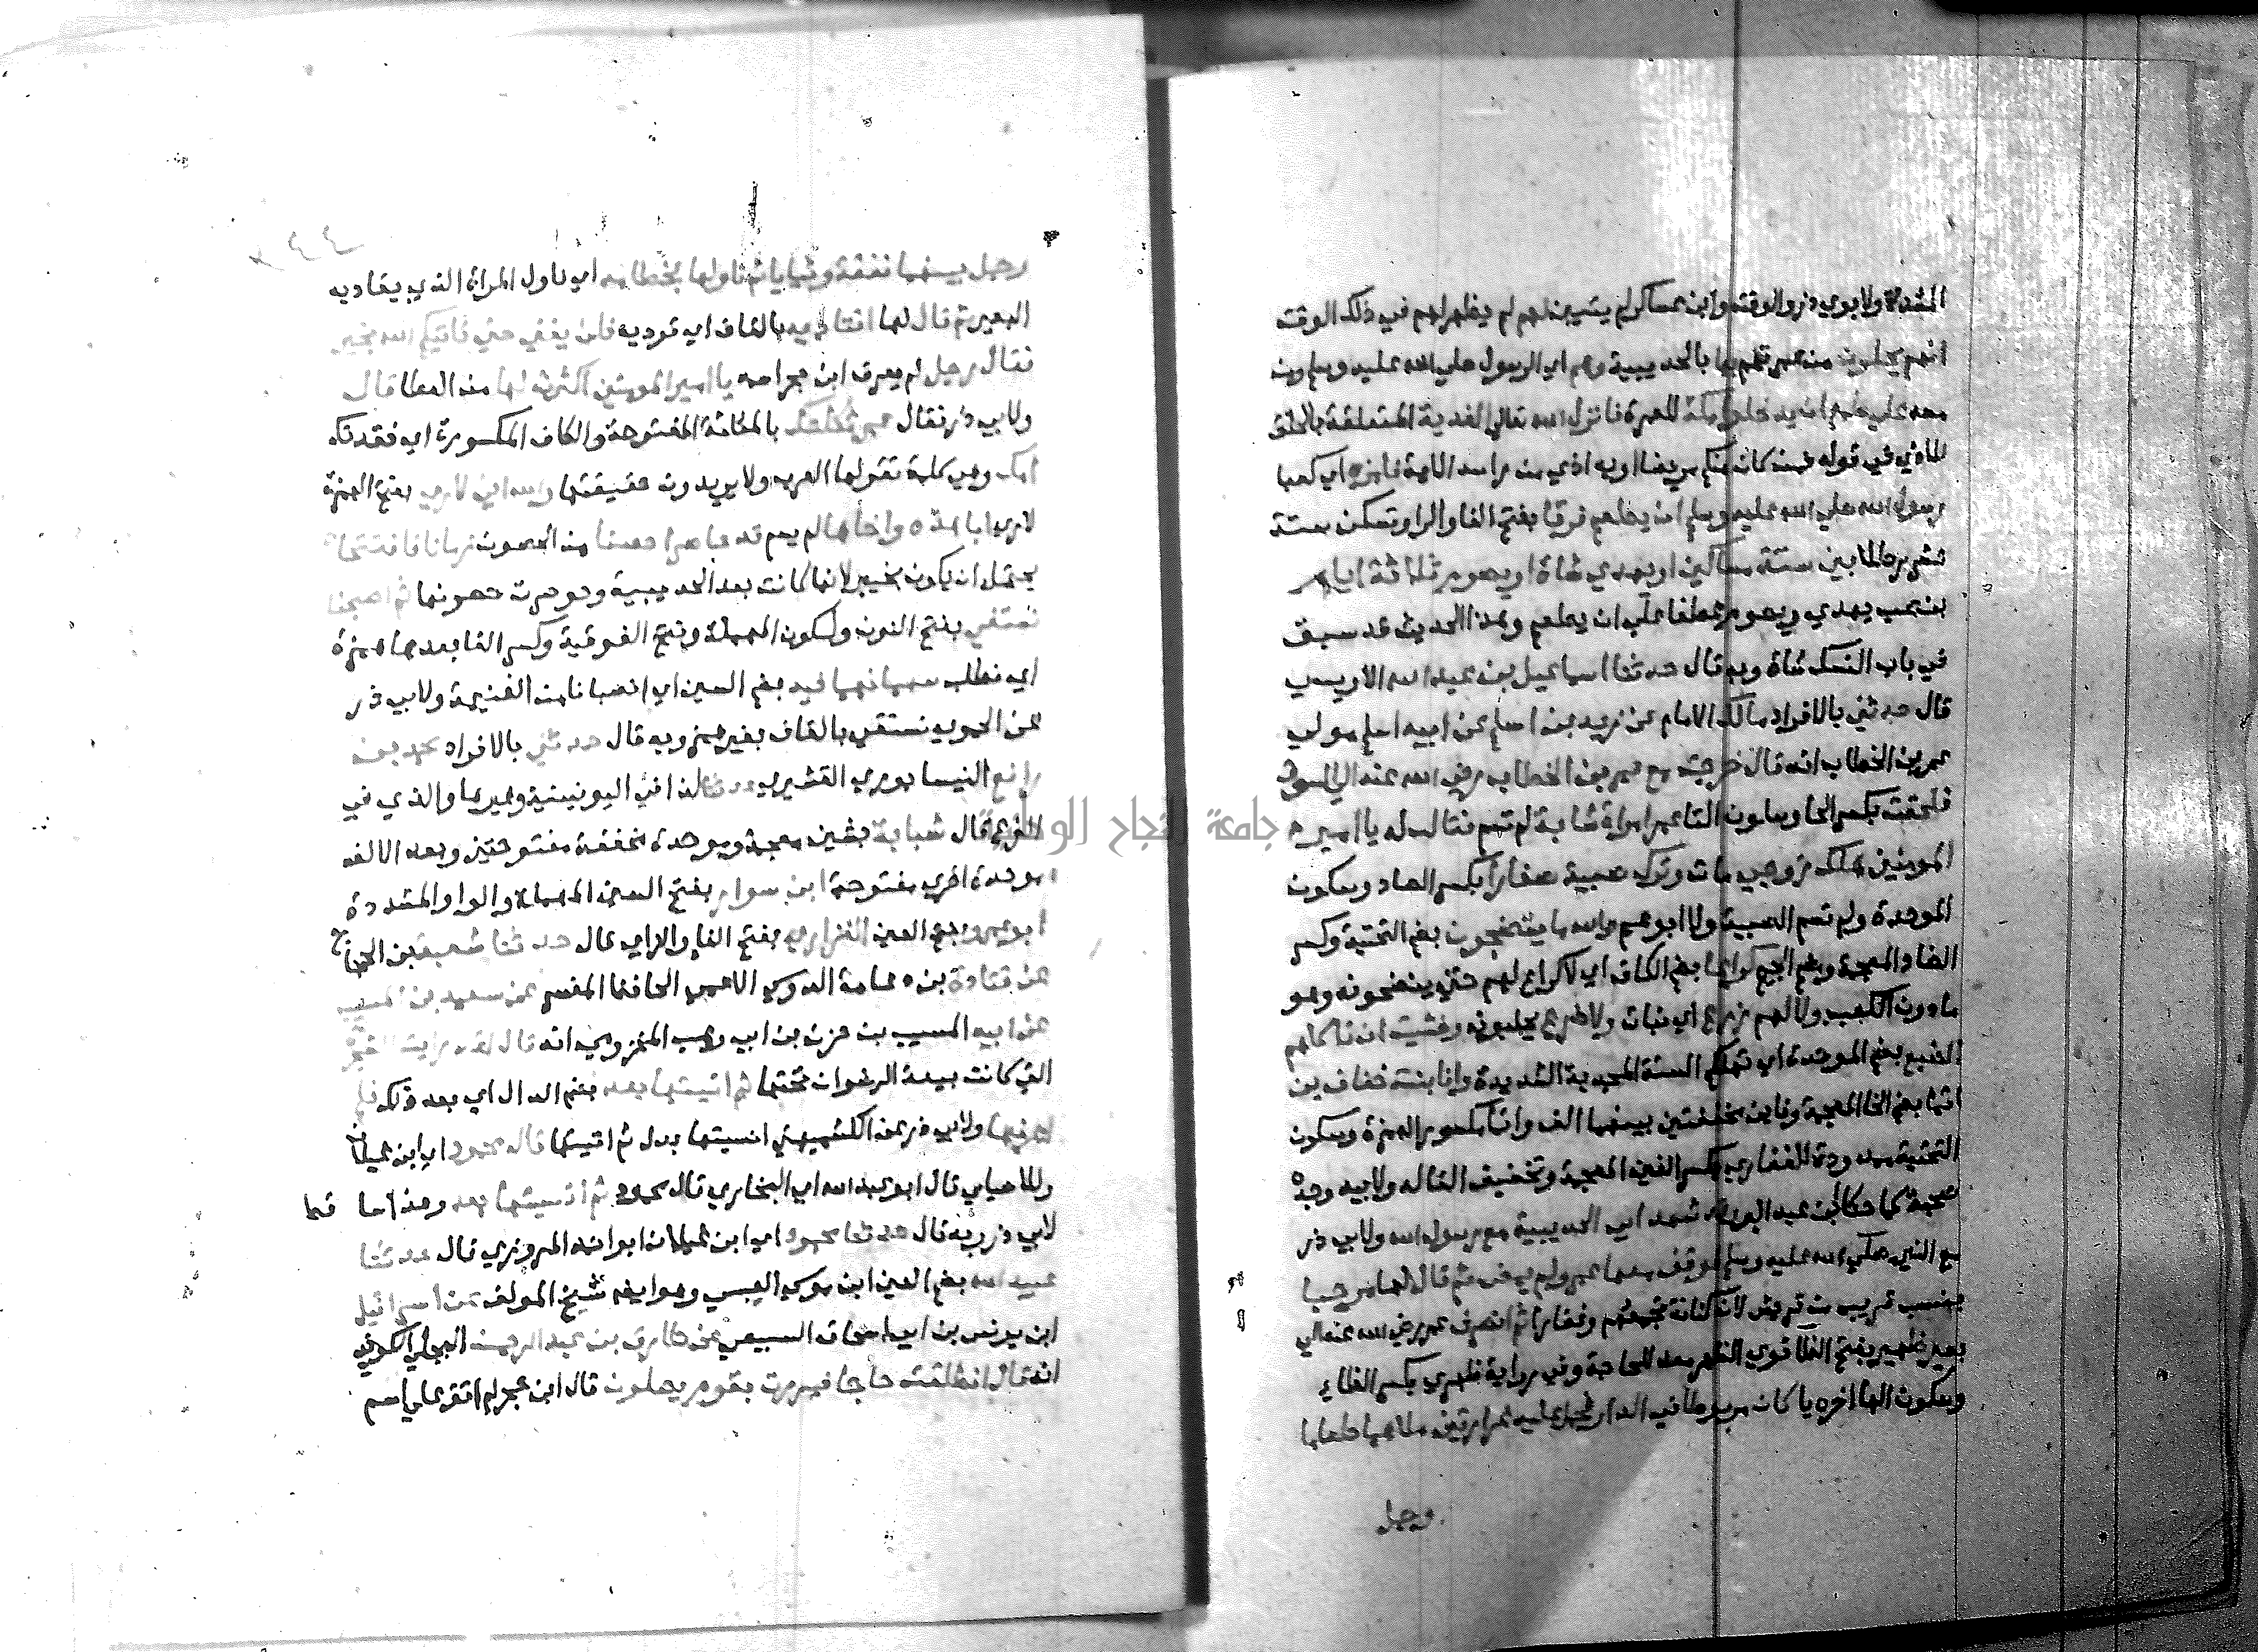 المشددة ولابوي ذر والوقت وابن عساكر لم يتبين لهم لم يظهر لهم في ذلك الوقت
انهم يحلون من عمرتهم بها بالحديبية وهم اي الرسول صلي الله عليه وسلم ومن
معه علي طمع ان يدخلوا مكة للعمرة فانزل الله تعالي الفدية المتعلقة بالحلق
للاذي في قوله فمن كان منكم مريضا او به اذي من راسه الاية فامره اي كعبا
رسول الله صلي الله عليه وسلم ان يطعم فرقا بفتح الفا والرا وتسكن ستة
عشر رطلا بين ستة مساكين او يهدي شاة او يصوم ثلاثة ايام
بنصب يهدي ويصوم عطفا علي ان يطعم وهذا الحديث قد سبق
في باب النسك شاة وبه قال حدثنا اسماعيل بن عبد الله الاويسي
قال حدثني بالافراد مالك الامام عن زيد بن اسلم عن ابيه اسلم مولي
عمر بن الخطاب انه قال خرجت مع عمر بن الخطاب رضي الله عنه الي السوق
فلحقت بكسر الحا وسكون التا عمر امراة شابة لم تسم فقالت له يا امير
المومنين هلك زوجي مات وترك صبية صغارا بكسر الصاد وسكون
الموحدة ولم تسم الصبية ولا ابوهم والله ما ينضجون بضم التحتية وكسر
الضاد المعجمة وبضم الجيم كراعا بضم الكاف اي لا كراع لهم حتي ينضجونه وهو
ما دون الكعب ولا لهم زرع اي نبات ولا ضرع يحلبونه وخشيت ان تاكلهم
الضبع بضم الموحدة اي تهلكهم السنة المجدبة الشديدة وانا بنت خفاف بن
ايما بضم الخا المعجمة وفاين مخففتين بينهما الف وايما بكسر الهمزة وسكون
التحتية ممدودة الغفاري بكسر الغين المعجمة وتخفيف الفا له ولابيه وجده
صحبة كما حكاه ابن عبد البر وقد شهد ابي الحديبية مع رسول الله ولابي ذر
مع النبي صلي الله عليه وسلم فوقف معها عمر ولم يمض ثم قال لها مرحبا
بنسب قريب من قريش لان كنانة تجمعهم وغفار ثم انصرف عمر رضي الله عنه الي
بعير ظهير بفتح الظا قوي الظهر معد للحاجة وفي رواية ظهري بكسر الظاء
وسكون الها اخره يا كان مربوطا في الدار فحمل عليه غرارتين ملاهما طعاما
وحمل
وحمل بينهما نفقة وثيابا ثم ناولها بخطامه اي ناول المراة الذي يقاد به
البعير ثم قال لها اقتاديه بالقاف اي قوديه فلن يفني حتي ياتيكم الله بخير
فقال رجل لم يعرف ابن حجر اسمه يا امير المومنين اكثرت لها من العطا قال
ولابي ذر فقال عمر ثكلتك بالمثلثة المفتوحة والكاف المكسورة اي فقدتك
امك وهي كلمة تقولها العرب ولا يريدون حقيقتها والله اني لاري بفتح الهمزة
لاري ابا هذه واخاها لم يسم قد حاصرا حصنا من الحصون زمانا فافتتحاه
يحتمل ان يكون بخيبر لانها كانت بعد الحديبية وحوصرت حصونها ثم اصبحنا
نستفي بفتح النون وسكون المهملة وفتح الفوقية وكسر الفا بعدها همزة
اي نطلب سهمانهما فيه بضم السين اي انصبانا من الغنيمة ولابي ذر
عن الحموي نستقي بالقاف بغير همز وبه قال حدثني بالافراد محمد بن
رافع النيسابوري القشيري حدثنا كذا في اليونينية وغيرها والذي في
الفرع قال شبابة بشين معجمة وموحدة مخففة مفتوحتين وبعد الالف
موحدة اخري مفتوحة ابن سوار بفتح السين المهملة والواو المشددة
ابو عمرو بفتح العين الفزاري بفتح الفا والزاي قال حدثنا شعبة بن الحجاج
عن قتادة بن دعامة السدوسي الاعمي الحافظ المفسر عن سعيد بن المسيب
عن ابيه المسيب بن حزن بن ابي وهب المخزومي انه قال لقد رايت الشجرة
التي كانت بيعة الرضوان تحتها ثم اتيتها بعد بضم الدال اي بعد ذلك فلم
اعرفها ولابي ذر عن الكشميهني انسيتها بدل ثم اتيتها قال محمود اي ابن غيلان
وللاصيلي قال ابو عبد الله اي البخاري قال محمود ثم انسيتها بعد وهذا ساقط
لابي ذر وبه قال حدثنا محمود اي ابن غيلان ابو احمد المروزي قال حدثنا
عبيد الله بضم العين ابن موسي العبسي وهو ايضا شيخ المولف عن اسرائيل
ابن يونس بن ابي اسحاق السبيعي عن طارق بن عبد الرحمن البجلي الكوفي
انه قال انطلقت حاجا فمررت بقوم يصلون قال ابن حجر لم اقف علي اسم
جامعة النجاح الوطنية